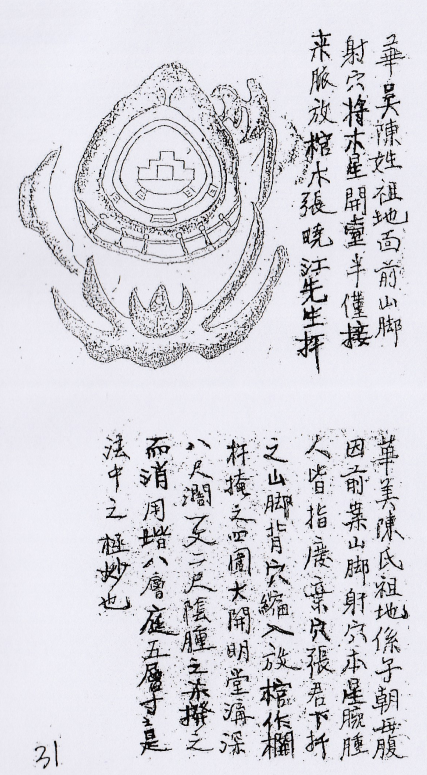 華吳陳姓祖地面前山脚
射穴將木星開堂半僅接
来脈放棺木張曉江先生扦
華美陳氏祖地係子朝母腹
因前案山脚射穴本星腕腫
人皆指廢棄穴張君下扦
之山脚背穴縮入放棺作欄
杆掩之四圍大開明堂溝深
八尺濶一丈二尺陰腫之氣撥之
而消用堦八層庭五層寸寸是
法中之極妙也
31